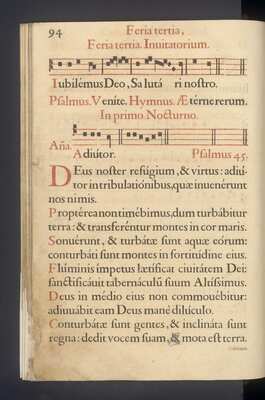 94
Feria tertia,
Feria tertia. Inuitatorium.
Iubilémus Deo, Salutá ri nostro.
Psalmus. Venite. Hymnus. Æterne rerum.
In primo Nocturno.
Aña.
Adiutor. Psalmus 45.
DEus noster refúgium, & virtus: adiú-
tor in tribulatiónibus, quæ inuenérunt
nos nimis.
Proptérea non timébimus, dum turbábitur
terra: & transferéntur montes in cor maris.
Sonuérunt, & turbátæ sunt aquæ eórum:
conturbáti sunt montes in fortitúdine eius.
Flúminis ímpetus lætíficat ciuitátem Dei:
sanctificáuit tabernáculũ suum Altíssimus.
Deus in médio eius non commouébitur:
adiuuábit eam Deus mane dilúculo.
Conturbátæ sunt gentes, & inclináta sunt
regna: dedit vocem suam, & mota est terra.